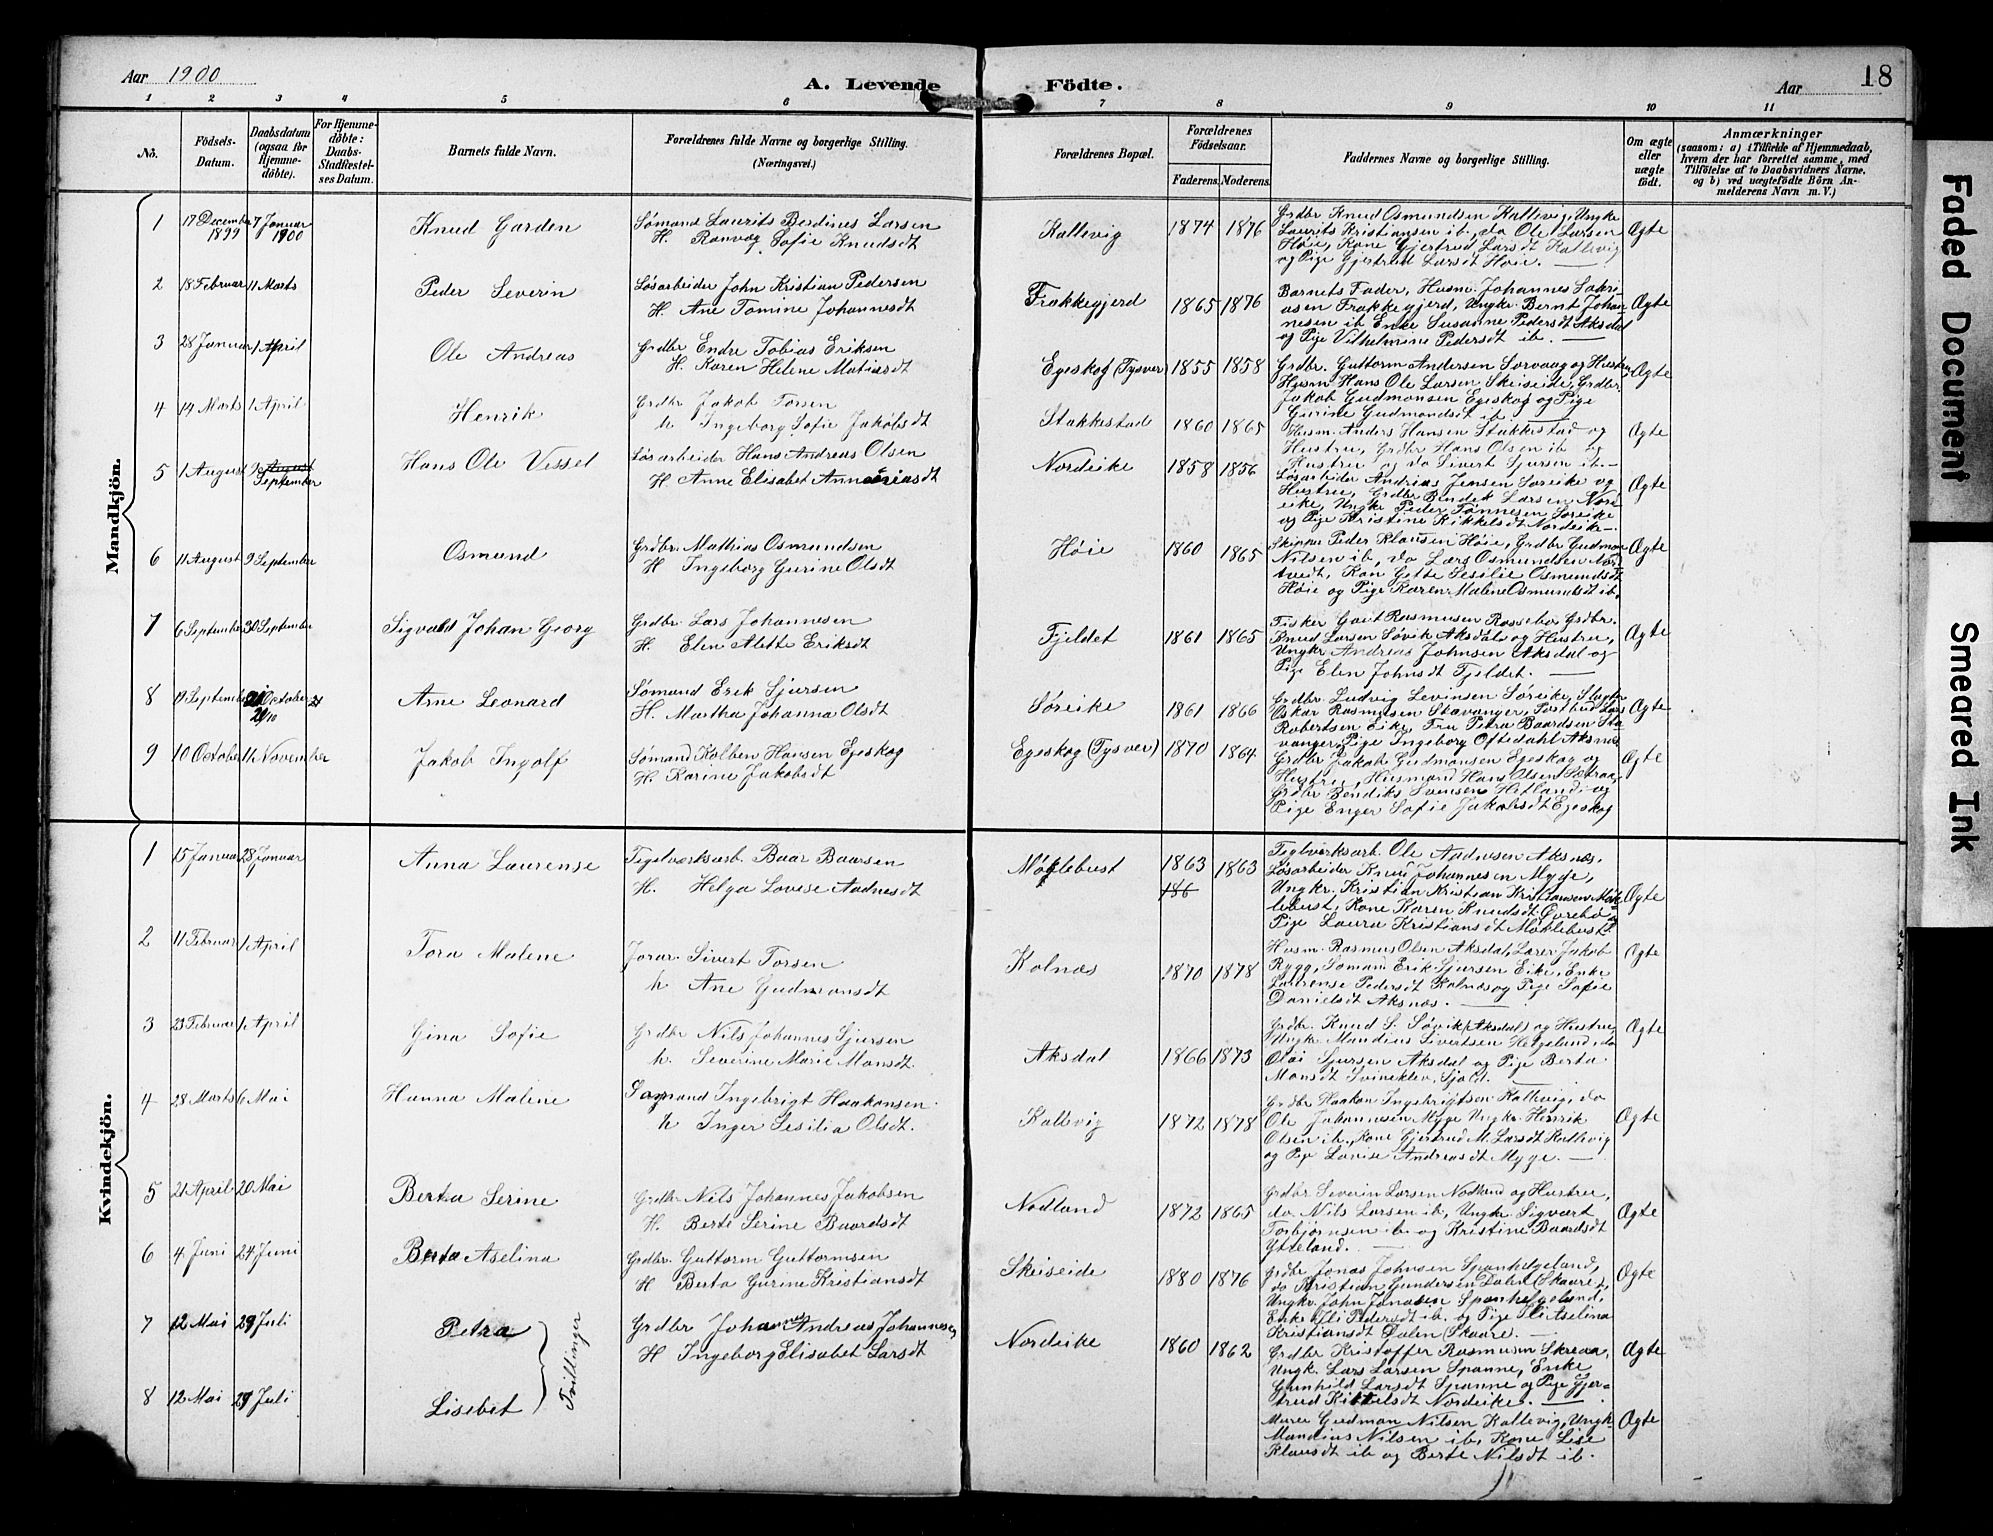 Aar 1900
A. Levende Födte.
Aar 18
1 2 3 4 5 6 7 8 9 10 11
No.
Födsels-Datum.
Daabsdatum (ogsaa for Hjemme-döbte).
For Hjemme-döbte: Daabs-Stadfæstel-ses Datum.
Barnets fulde Navn.
Forældrenes fulde Navne og borgerlige Stilling.
(Næringsvei.)
Forældrenes Bopæl.
Forældrenes Födselsaar.
Faderens. Moderens.
Faddernes Navne og borgerlige Stilling.
Om ægte eller uægte födt.
Anmærkninger
(saasom: a) i Tilfælde af Hjemmedaab,
hvem der har forrettet samme, med
Tilföielse af to Daabsvidners Navne,
og b) ved uægtefödte Börn An-
melderens Navn m. V.)
Mandkjön.
1 17 December 1899 7 Januar 1900 Knud Garden Sømand Laurits Berdines Larsen
H. Ranvog Sofie Knudsdt
Kallevig 1874 1876 Grdbr Knud Osmundsen Kallevig, Ungke
Laurits Kristiansen ib, do Ole Larsen
Høie, Kone Gjertrud Larsdt Kallevig
og Pige Gjertrud Larsdt Høie. Ægte
2 18 Februar 11 Marts Peder Severin Løsarbeider John Kristian Pedersen
H. Ane Tomine Johannesdt
Frakkegjerd 1865 1876 Barnets Fader, Husm. Johannes Sakri-
asen Frakkegjerd, Ungkr. Bernt Johan
nesen ib Enke Susanne Pedersdt Aksdal
og Pige Vilhelmine Pedersdt ib. Ægte
3 28 Januar 1 April Ole Andreas Grdbr Endre Tobias Eriksen
H. Karen Helene Matiasdt
Egeskog (Tysvær) 1855 1858 Grdbr. Guttorm Andersen Sørvaag og Hustru
Husm. Hans Ole Larsen Skeiseide, Grdbr.
Jakob Gudmonsen Egeskog og Pige
Gurine Gudmondsdt ib. Ægte
4 14 Marts 1 April Henrik Grdbr Jakob Torsen
h Ingeborg Sofie Jakobsdt
Stakkestad 1860 1865 Husm. Anders Hansen Stakkestad og
Hustru, Grdbr Hans Olsen ib og
Hustru og do Sivert Sjursen ib. Ægte
5 1 August 9 August September Hans Ole Vissel Løsarbeider Hans Andreas Olsen
H. Anne Elisabet Andreasdt
Nordeike 1858 1856 Løsarbeider Andreas Jensen Søreike og
Hustru, Grdbr Bendik Larsen Nord
eike, Ungke Peder Tønnesen Søreike
og Pige Kristine Kikkelsdt Nordeike Ægte
6 11 August 9 September Osmund Grdbr. Mathias Osmundsen
H Ingeborg Gurine Olsdt
Høie 1860 1865 Skipper Peder Klausen Høie, Grdbr Gudmon
Nilsen ib, do Lars Osmundsen Nord
tvedt, Kon Gette Sesilie Osmundsdt
Høie og Pige Karen Malene Osmundsdt ib. Ægte
7 6 September 30 September Sigvald Johan Georg Grdbr. Lars Johannesen
H. Elen Alette Eriksdt
Fjeldet 1861 1865 Fisker Gaut Rasmusen Røssebø Grdbr.
Knud Larsen Søvik Aksdal og Hustru,
Ungkr Andreas Johnsen Aksdal og
Pige Elen Johnsdt Fjeldet. Ægte
8 19 September October 21/10 21 Arne Leonard Sømand Erik Sjursen
H. Martha Johanna Olsdt
Søreike 1861 1866 Grdbr. Ludvig Levinsen Søreike, Slagter
Oskar Rasmusen Stavanger, Postbud Lars
Robertsen Eike, Fru Petra Baardsen Sta
vanger, Pige Ingeborg Oftedahl Aksnæs Ægte
9 10 October 11 November Jakob Ingolf Sømand Kolben Hansen Egeskog
H. Karine Jakobsdt
Egeskog (Tysvær) 1870 1864 Grdbr Jakob Gudmonsen Egeskog og
Hustru, Husmand Hans Olsen Sætraa,
Grdbr Bendiks Svensen Hetland og
Pige Enger Sofie Jakobsdt Egeskog Ægte
Kvindekjön.
1 15 Januar 28 Januar Anna Laurense Teglværksarb. Baar Baarsen
H. Helga Lovise Aadnesdt
Møklebust 1863 186 1863 Teglværksarb. Ole Aadnesen Aksnæs,
Løsarbeider Knud Johannesen Myge,
Ungkr. Kristian Kristian Kristiansen Møk-
lebust, Kone Karen Knudsdt Øvrebø og
Pige Laura Kristiansdt Møklebust Ægte
2 11 Februar 1 April Tora Malene Forar. Sivert Torsen
h Ane Gudmonsdt
Kolnæs 1870 1878 Husm. Rasmus Olsen Aksdal, Lærer Jakob
Rygg, Sømand Erik Sjursen Eike, Enke
Laurense Pedersdt Kolnæs og Pige Sofie
Danielsdt Aksnæs. Ægte
3 23 Februar 1 April Gina Sofie Grdbr Nils Johannes Sjursen
h. Severine Marie Monsdt
Aksdal 1866 1873 Grdbr. Knud S. Søvik (Aksdal) og Hustru,
Ungkr. Mandius Sivertsen Helgeland, do
Olai Sjursen Aksdal og Pige Berta
Monsdt Svineklev, Sjold. Ægte
4 28 Marts 6 Mai Hanna Maline Sømand Ingebrigt Haakonsen
h Inger Sesilia Olsdt.
Kallevig 1872 1878 Grdbr Haakon Ingebrigtsen Kallevig, do
Ole Johannesen Myge Ungkr. Henrik
Olsen ib., Kone Gjertrud M. Larsdt Kallevig
og Pige Lovise Andreasdt Myge. Ægte
5 21 April 20 Mai Berta Serine Grdbr Nils Johannes Jakobsen
H. Berte Serine Baardsdt
Nodland 1872 1865 Grdbr Severin Larsen Nodland og Hustru,
do. Nils Larsen ib, Ungkr. Sigvart
Torbjørnsen ib. og Kristine Baardsdt
Ytteland. Ægte
6 4 Juni 24 Juni Berta Aselina Grdbr. Guttorm Guttormsen
H. Berta Gurine Kristiansdt
Skeiseide 1880 1876 Grdbr Jonas Johnsen Spanhelgeland,
do Kristian Gundersen Dalen (Skaare),
Ungkr. John Jonasen Spanhelgeland,
Enke Eli Pedersdt ib. og Pige Eli Aselina
Kristiansdt Dalen (Skaare). Ægte
7 12 Mai 29 Juli Petra Grdbr Johannes Andreas Johannesen
H Ingeborg Elisabet Larsdt
Nordeike 1860 1862 Grdbr Kristoffer Rasmusen Skreaa,
Ungk. Lars Larsen Spanne, Enke
Gunhild Larsdt Spanne og Pige Gjer-
trud Kittelsdt Nordeike. Ægte
8 12 Mai 29 Juli Lisebet
Tvillinger
Murer Gudmon Nilsen Kallevig, Ungk
Mandius Nilsen ib, Kone Lise
Klausdt ib og Berte Nilsdt ib. Ægte
Faded Document
Smeared Ink